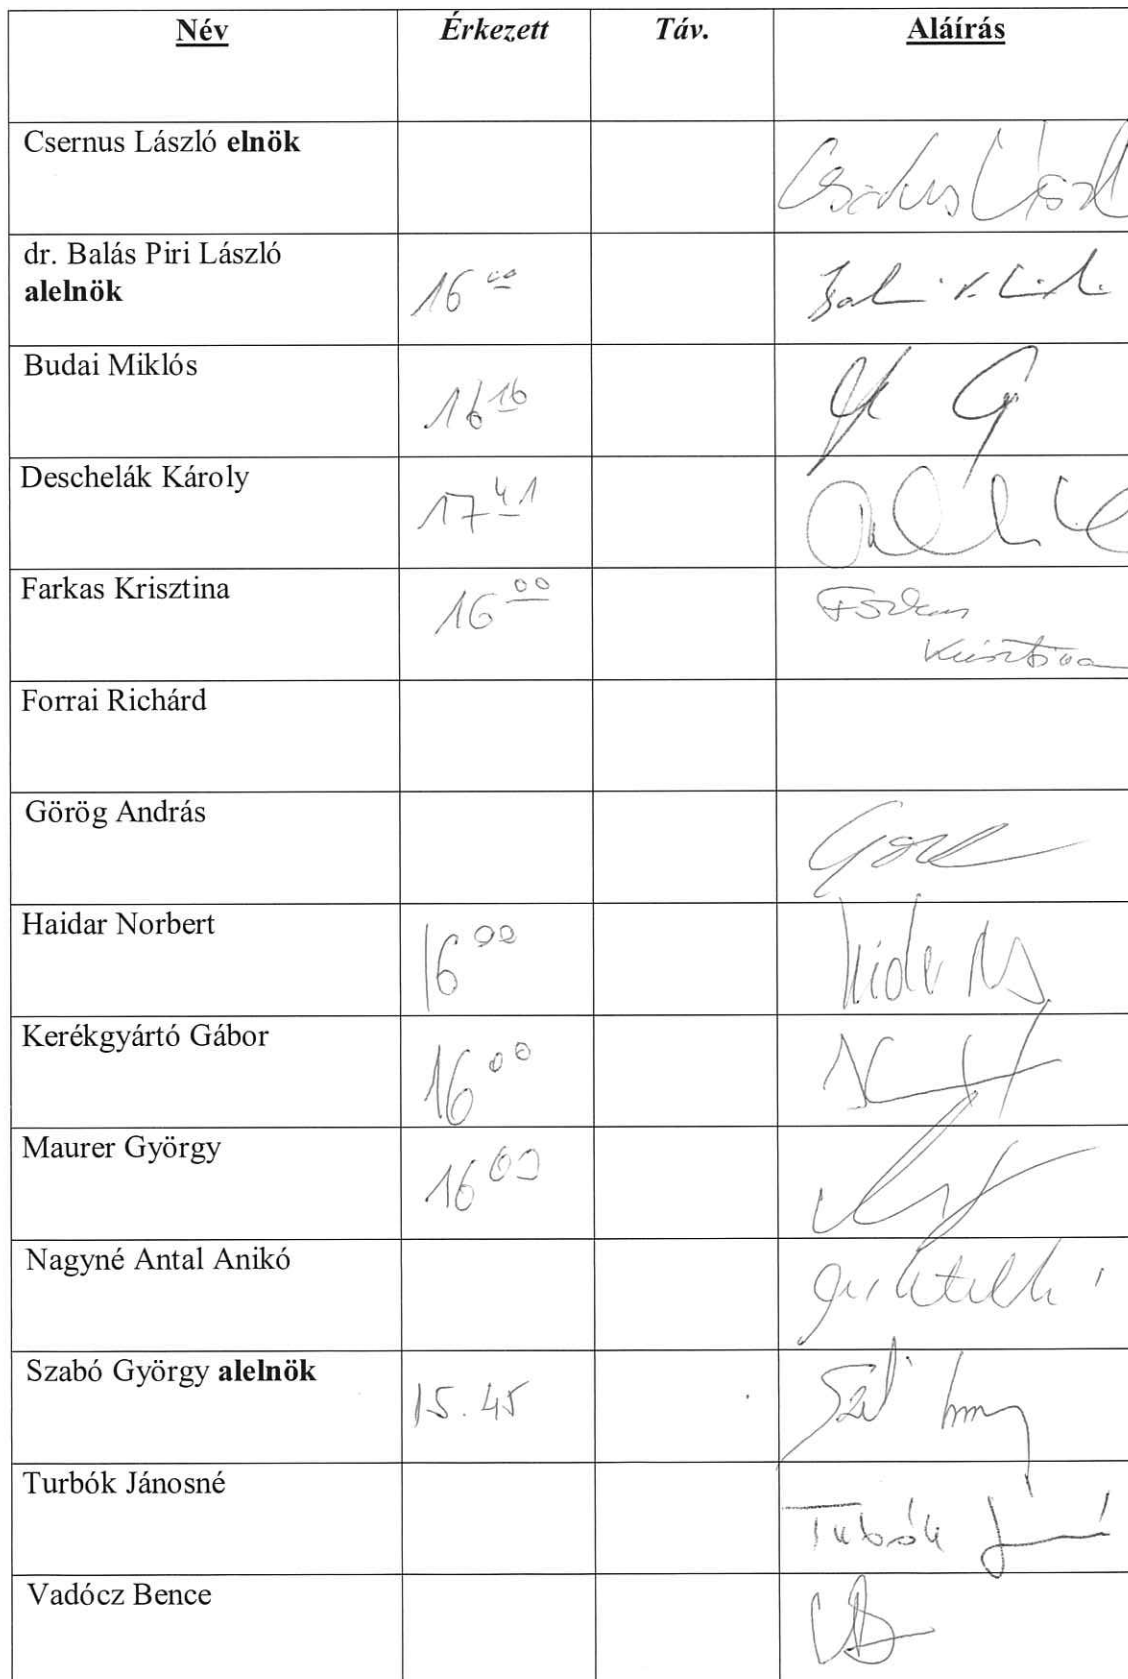 Név Érkezett Táv. Aláírás
Csernus László elnök
dr. Balás Piri László
alelnök 16 00
Budai Miklós 16 16
Deschelák Károly 17 41
Farkas Krisztina 16 00 Farkas
Krisztina
Forrai Richárd
Görög András
Haidar Norbert 16 00
Kerékgyártó Gábor 16 00
Maurer György 16 00
Nagyné Antal Anikó
Szabó György alelnök 15.45
Turbók Jánosné
Vadócz Bence